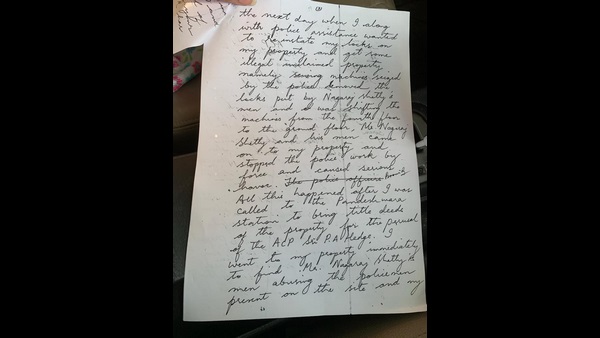 (3)
the next day when I along
with police assistance wanted
to reinstate my locks on
my property and get some
illegal unclaimed property
namely sewing machines seized
by the police removed the
locks put by Nagaraj Shetty's
men and I was shifting the
machines from the fourth floor
to the ground floor, Mr Nagaraj
Shetty and his men came
on to my property and
stopped the police work by
force and caused serious
havoc. The police officers
All this happened after I was
called to the Pandeshwara
station to bring title deeds
of the property for the perusal
of the ACP Sri P.A Hedge. I
went to my property immediately
to find Mr. Nagaraj Shetty's
men abusing the policemen
present on the site and my